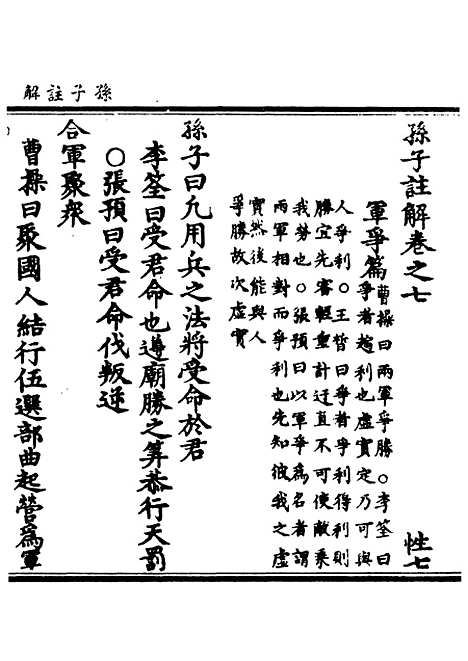 孫子註解
孫子註解卷之七
性七
軍爭篇
曹操曰兩軍爭勝○李筌曰
爭者趨利也虛實定乃可與
人爭利○王晳曰爭者爭利得利則
勝宜先審輕重計迂直不可使敵乘
我勞也○張預曰以軍爭爲名者謂
兩軍相對而爭利也先知彼我之虛
實然後能與人
爭勝故次虛實
孫子曰凡用兵之法將受命於君
李筌曰受君命也遵廟勝之筭恭行天罰
○張預曰受君命伐叛逆
合軍聚衆
曹操曰聚國人結行伍選部曲起營爲軍